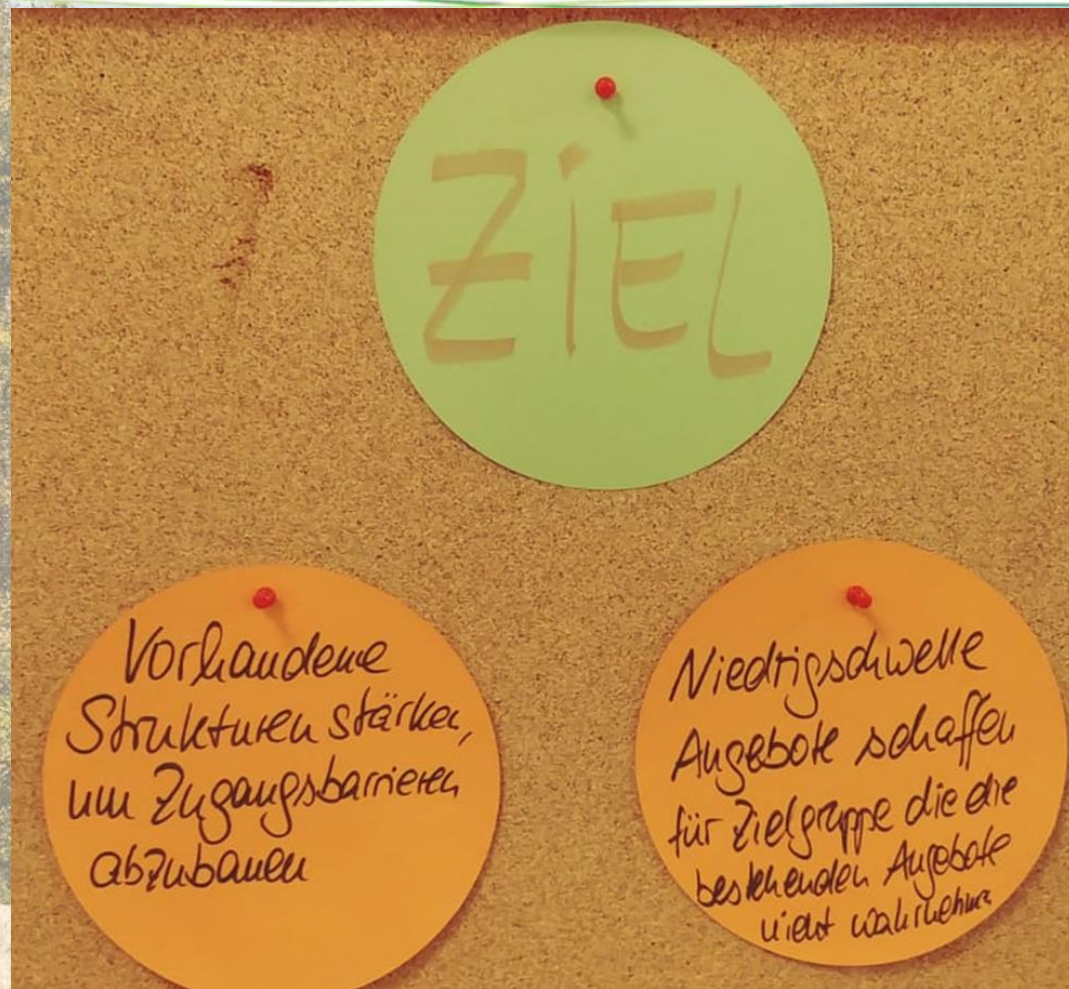 ZiEL
Vorhandene
Strukturen stärken,
um Zugangsbarrieren
abzubauen
Niedrigschwelle
Angebote schaffen
für Zielgruppe die die
bestehenden Angebote
nicht wahrnehmen